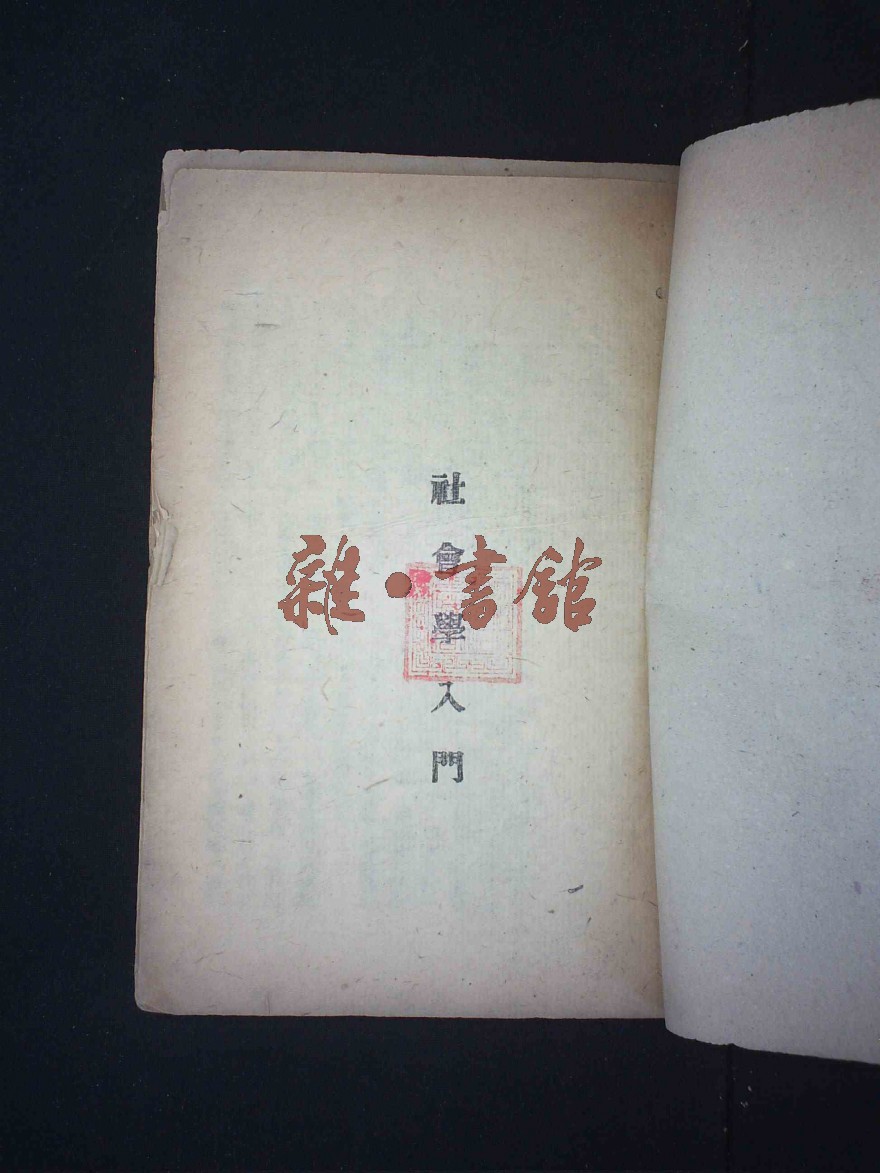 社會學入門
雜·書館